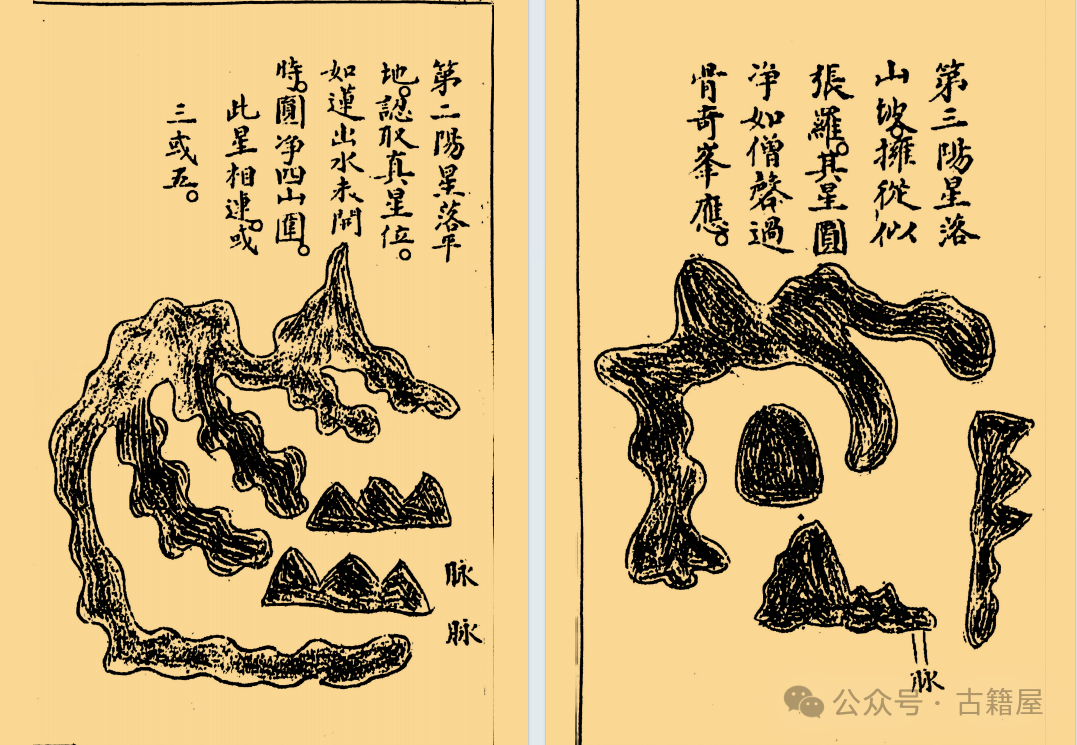 第二陽星落平
地。認取真星位。
如蓮出水未開
時。圓净四山圍。
此星相連。或
三或五。
脉
脉
第三陽星落
山坡。擁從似
張羅。其星圓
净如僧磬過
骨奇峯應。
脉
公众号 · 古籍屋